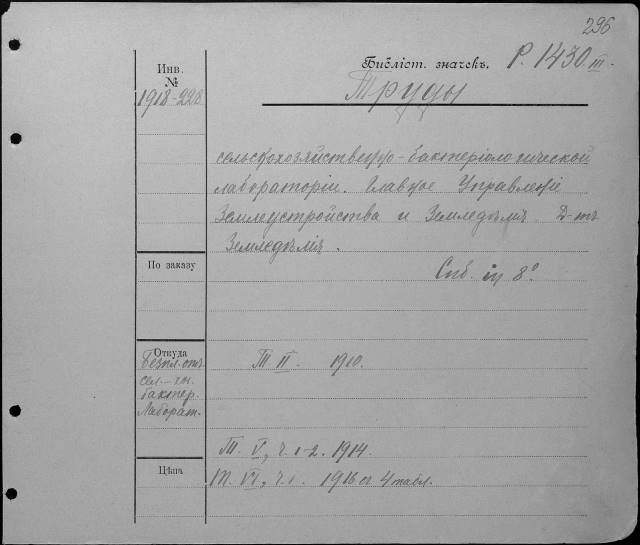 296
Инв.
№
1918-228
Библіот. значекъ. Р. 1430. III.
Труды
сельскохозяйственно-бактеріологической
лабораторіи. Главное Управленіе
Землеустройства и Земледѣлія. Д-тъ
Земледѣлія.
По заказу
Спб. in 8°.
Откуда
Безпл. отъ
сел.-хоз.
бактер.
Лаборат.
Т. II. 1910.
Т. V, ч. 1-2. 1914.
Цѣна
Т. VI, ч. 1. 1916 съ 4 табл.